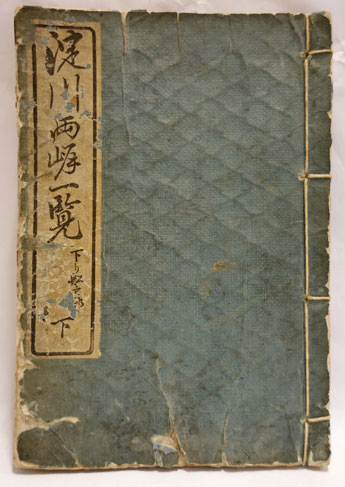 淀川両岸一覧
下り船之部
下